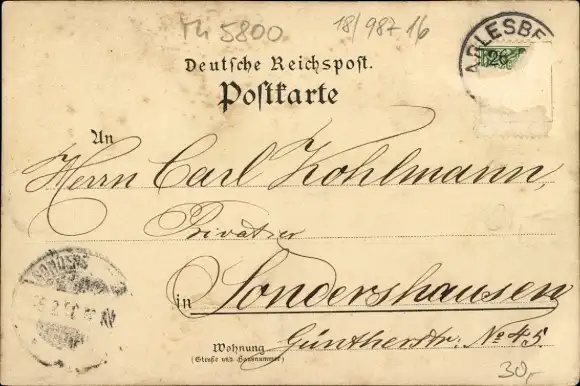 Th 5800
18/987 16
ARLESBE
26
Deutsche Reichspost.
Postkarte
An
Herrn Carl Kohlmann,
Privatier
in Sondershausen
Güntherstr: No 45.
Wohnung
(Straße und Hausnummer)
30,-